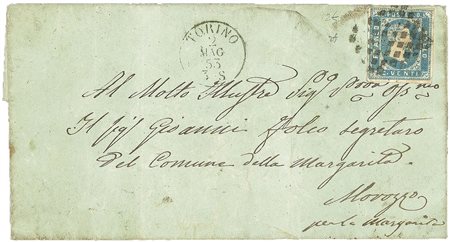 TORINO
2
MAG
53
3 S
FRANCO
C. VENTI
Al Molto Illustre Sig.
Il Sig. Gioanni Folco segretaro
del Comune della Margarita
Morozzo
per la Margarita